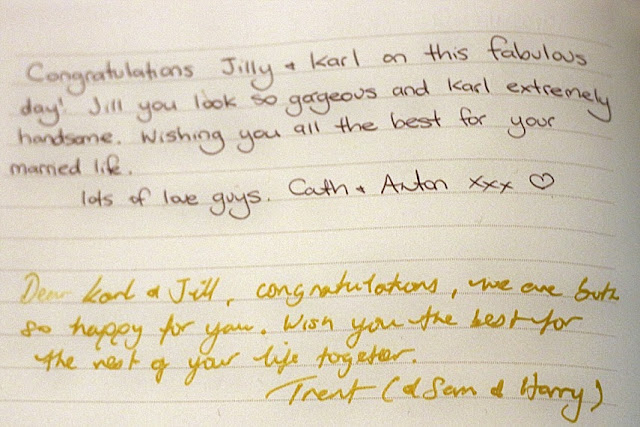 Congratulations Jilly + Karl on this fabulous
day! Jill you look so gageous and Karl extremely
handsome. Wishing you all the best for your
married life.
lots of love guys. Cath + Anton xxx ♡
Dear Karl & Jill, congratulations, we are both
so happy for you. Wish you the best for
the rest of your life together.
Trent (& Sam & Harry)